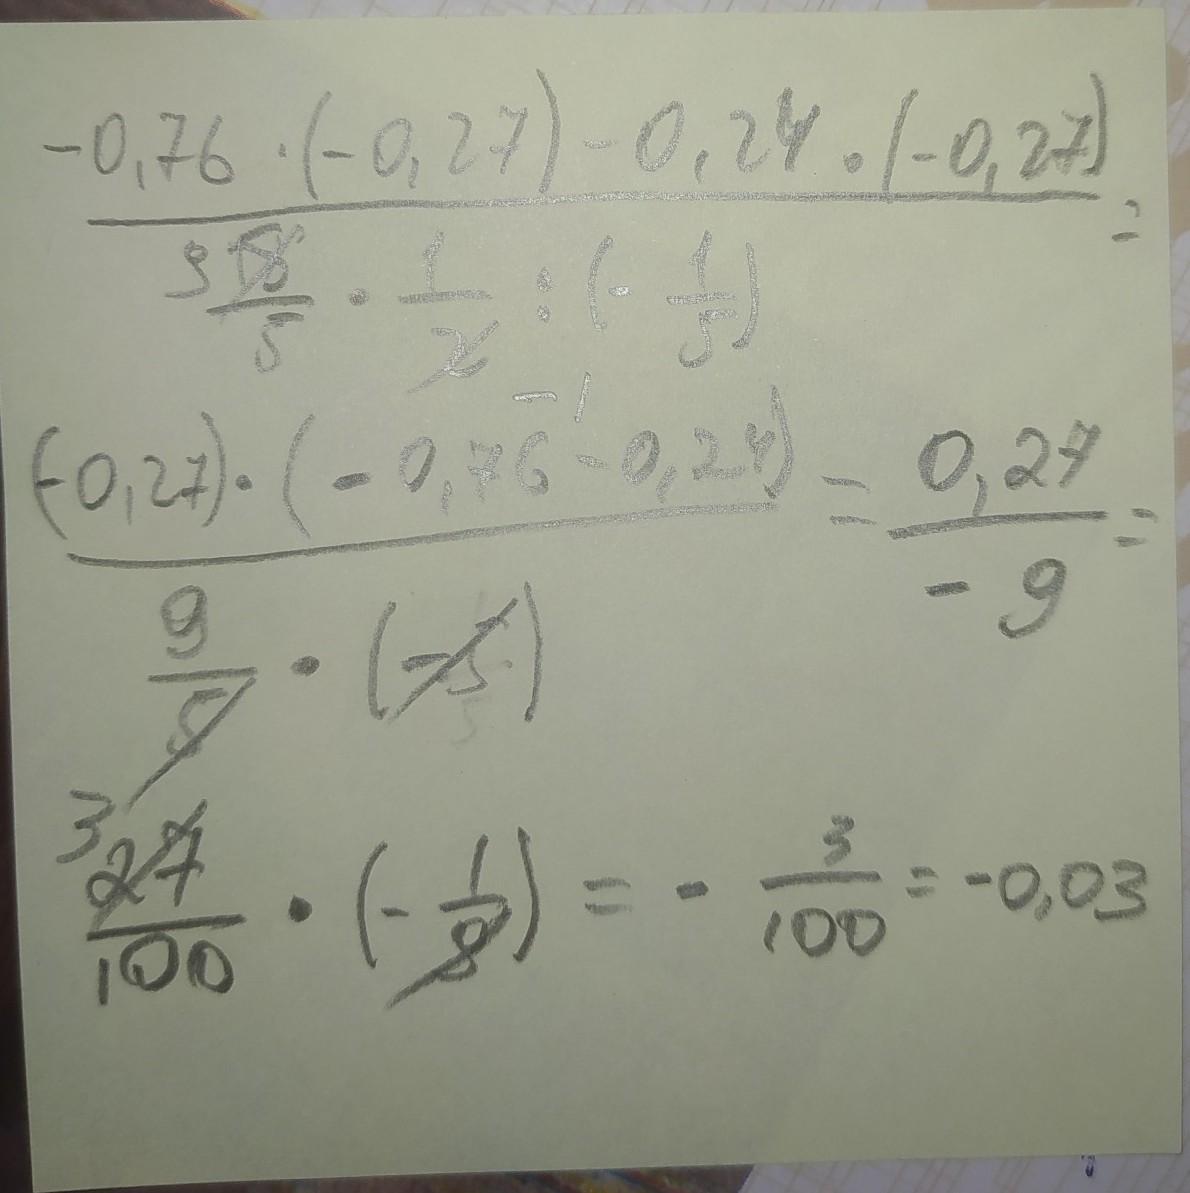 -0,76 · (-0,27) - 0,24 · (-0,27) =
9 18/5 · 1/2 : (-1/5)
-1
(-0,27) · (-0,76 - 0,24) = 0,27/-9 =
9/5 · (-5)
3 27/100 · (-1/9) = - 3/100 = -0,03